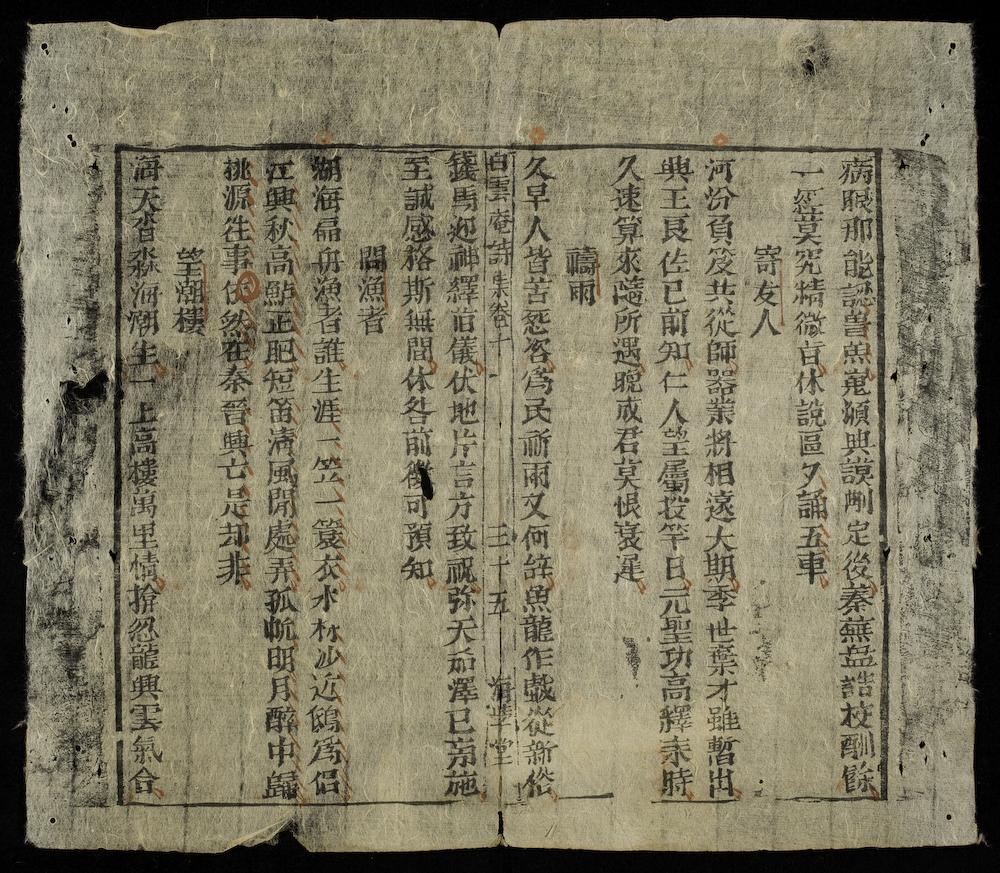 病眼那能認魯魚嵬煩典謨刪定後秦蕪盤誥校酬餘
一經莫究精微旨休說區夕誦五車
寄友人
河汾負笈共從師器業將相遠大期季世棄才雖暫出
興王良佐已前知仁人望屬投竿日元聖功高釋耒時
久速算來隨所遇晚成君莫恨衰遲
禱雨
久旱人皆苦怨咨爲民祈雨又何辞魚龍作戯從新俗
鐃馬迎神繹旧儀伏地片言方致祝弥天甘澤已旁施
至誠感格斯無間休咎前後可預知
白雲庵詩集卷十
三十五
海學堂
問漁者
湖海偏舟漁者誰生涯一笠一簑衣水村沙近鷗為侣
江興秋高鱸正肥短笛清風閒處弄孤帆明月醉中歸
桃源往事依然在秦晉興亡是却非
望潮樓
海天杳淼海潮生一上高樓萬里情搶忽龍興雲氣合